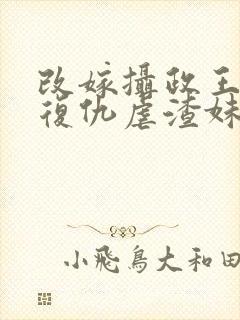 改嫁攝政王
復仇虐渣妹
小飛鳥大和田